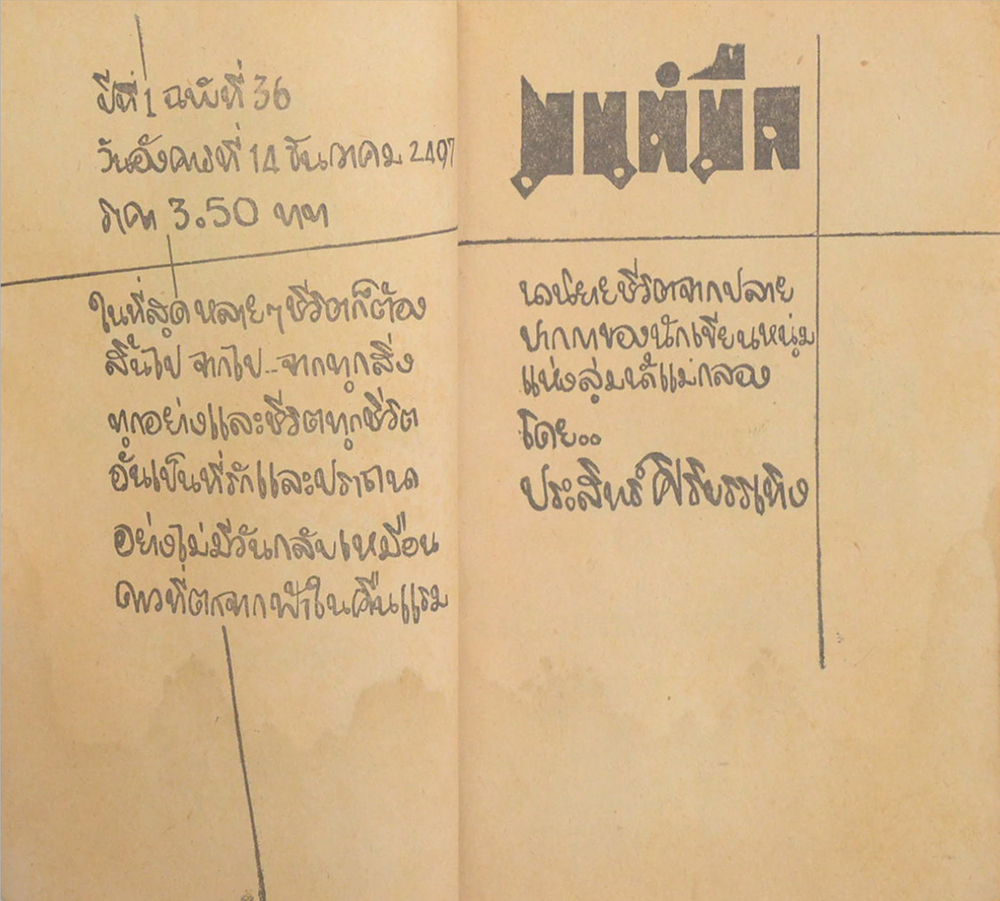 ปีที่ 1 ฉบับที่ 36
วันอังคารที่ 14 ธันวาคม 2497
ราคา 3.50 บาท
ในที่สุดหลายๆชีวิตก็ต้อง
สิ้นไป จากไป...จากทุกสิ่ง
ทุกอย่างและชีวิตทุกชีวิต
อันเป็นที่รักและปรารถนา
อย่างไม่มีวันกลับเหมือน
ดาวที่ตกจากฟ้าในคืนแรม
มุมมืด
นวนิยายชีวิตจากปลาย
ปากกาของนักเขียนหนุ่ม
แห่งลุ่มน้ำแม่กลอง
โดย..
ประสิทธิ์ ศิริบรรเทิง